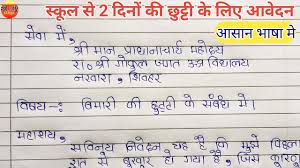 स्कूल से 2 दिनों की छुट्टी के लिए आवेदन
आसान भाषा मे
सेवा में,
श्री मान प्रधानाचार्य महोदय
रा० श्री गोकुल ज्यात उच्च विद्यालय
नरवारा, शिवहर
विषय -: बिमारी की छुट्टी के संबंध में।
महाशय,
सविनय निवेदन यह है कि मुझे पिछले
रात से बुखार हो गया है, जिस कि